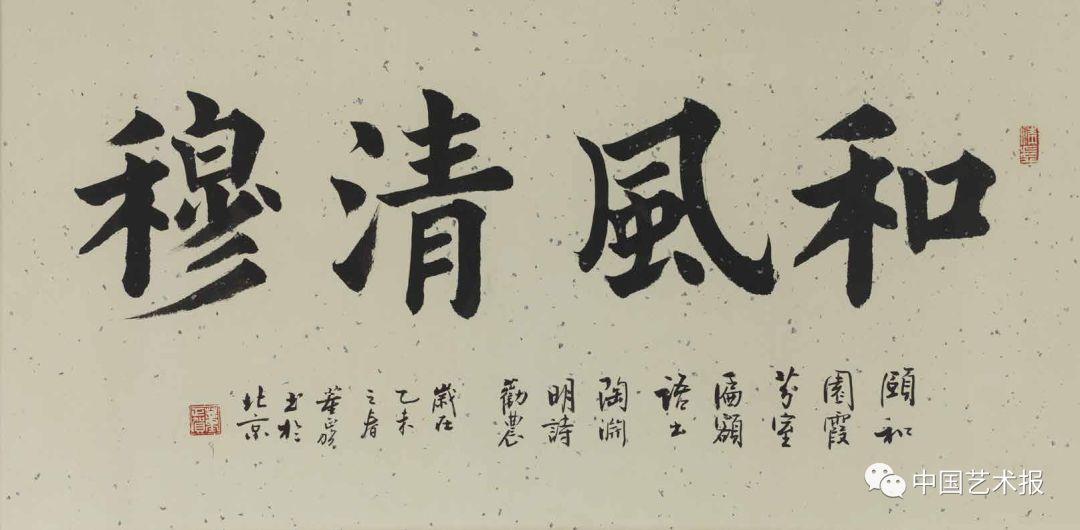 和風清穆
頤和
園霞
芬室
匾額
語出
陶淵
明詩
勸農
歲在
乙未
之春
書於
北京
中国艺术报